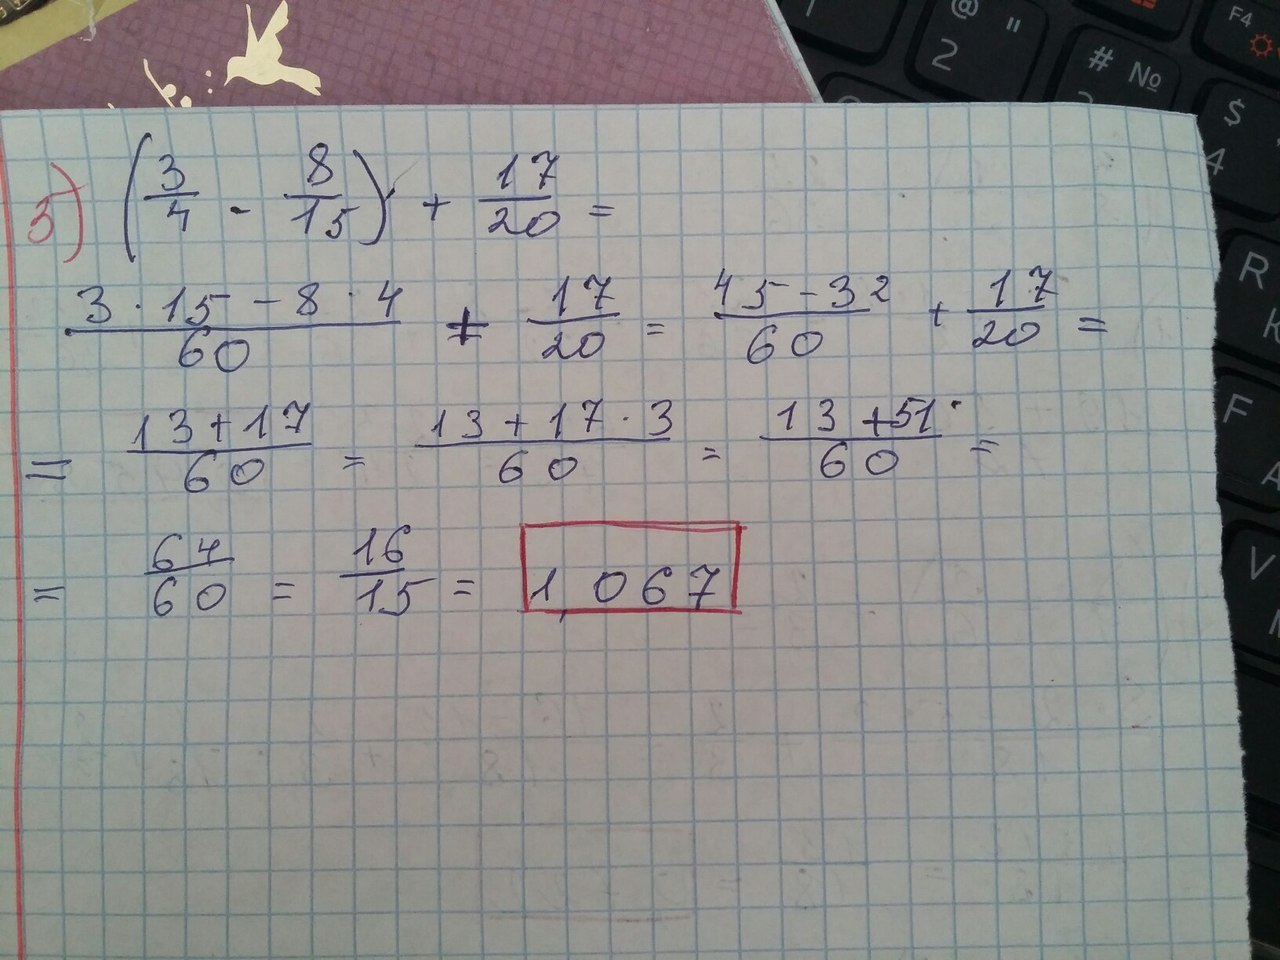 5) (3/4 - 8/15) + 17/20 =
(3 · 15 - 8 · 4)/60 + 17/20 = (45 - 32)/60 + 17/20 =
= (13 + 17)/60 = (13 + 17 · 3)/60 = (13 + 51)/60 =
= 64/60 = 16/15 = 1,067
@ " 2
# №
$ 4
F4
R К
F А
V М